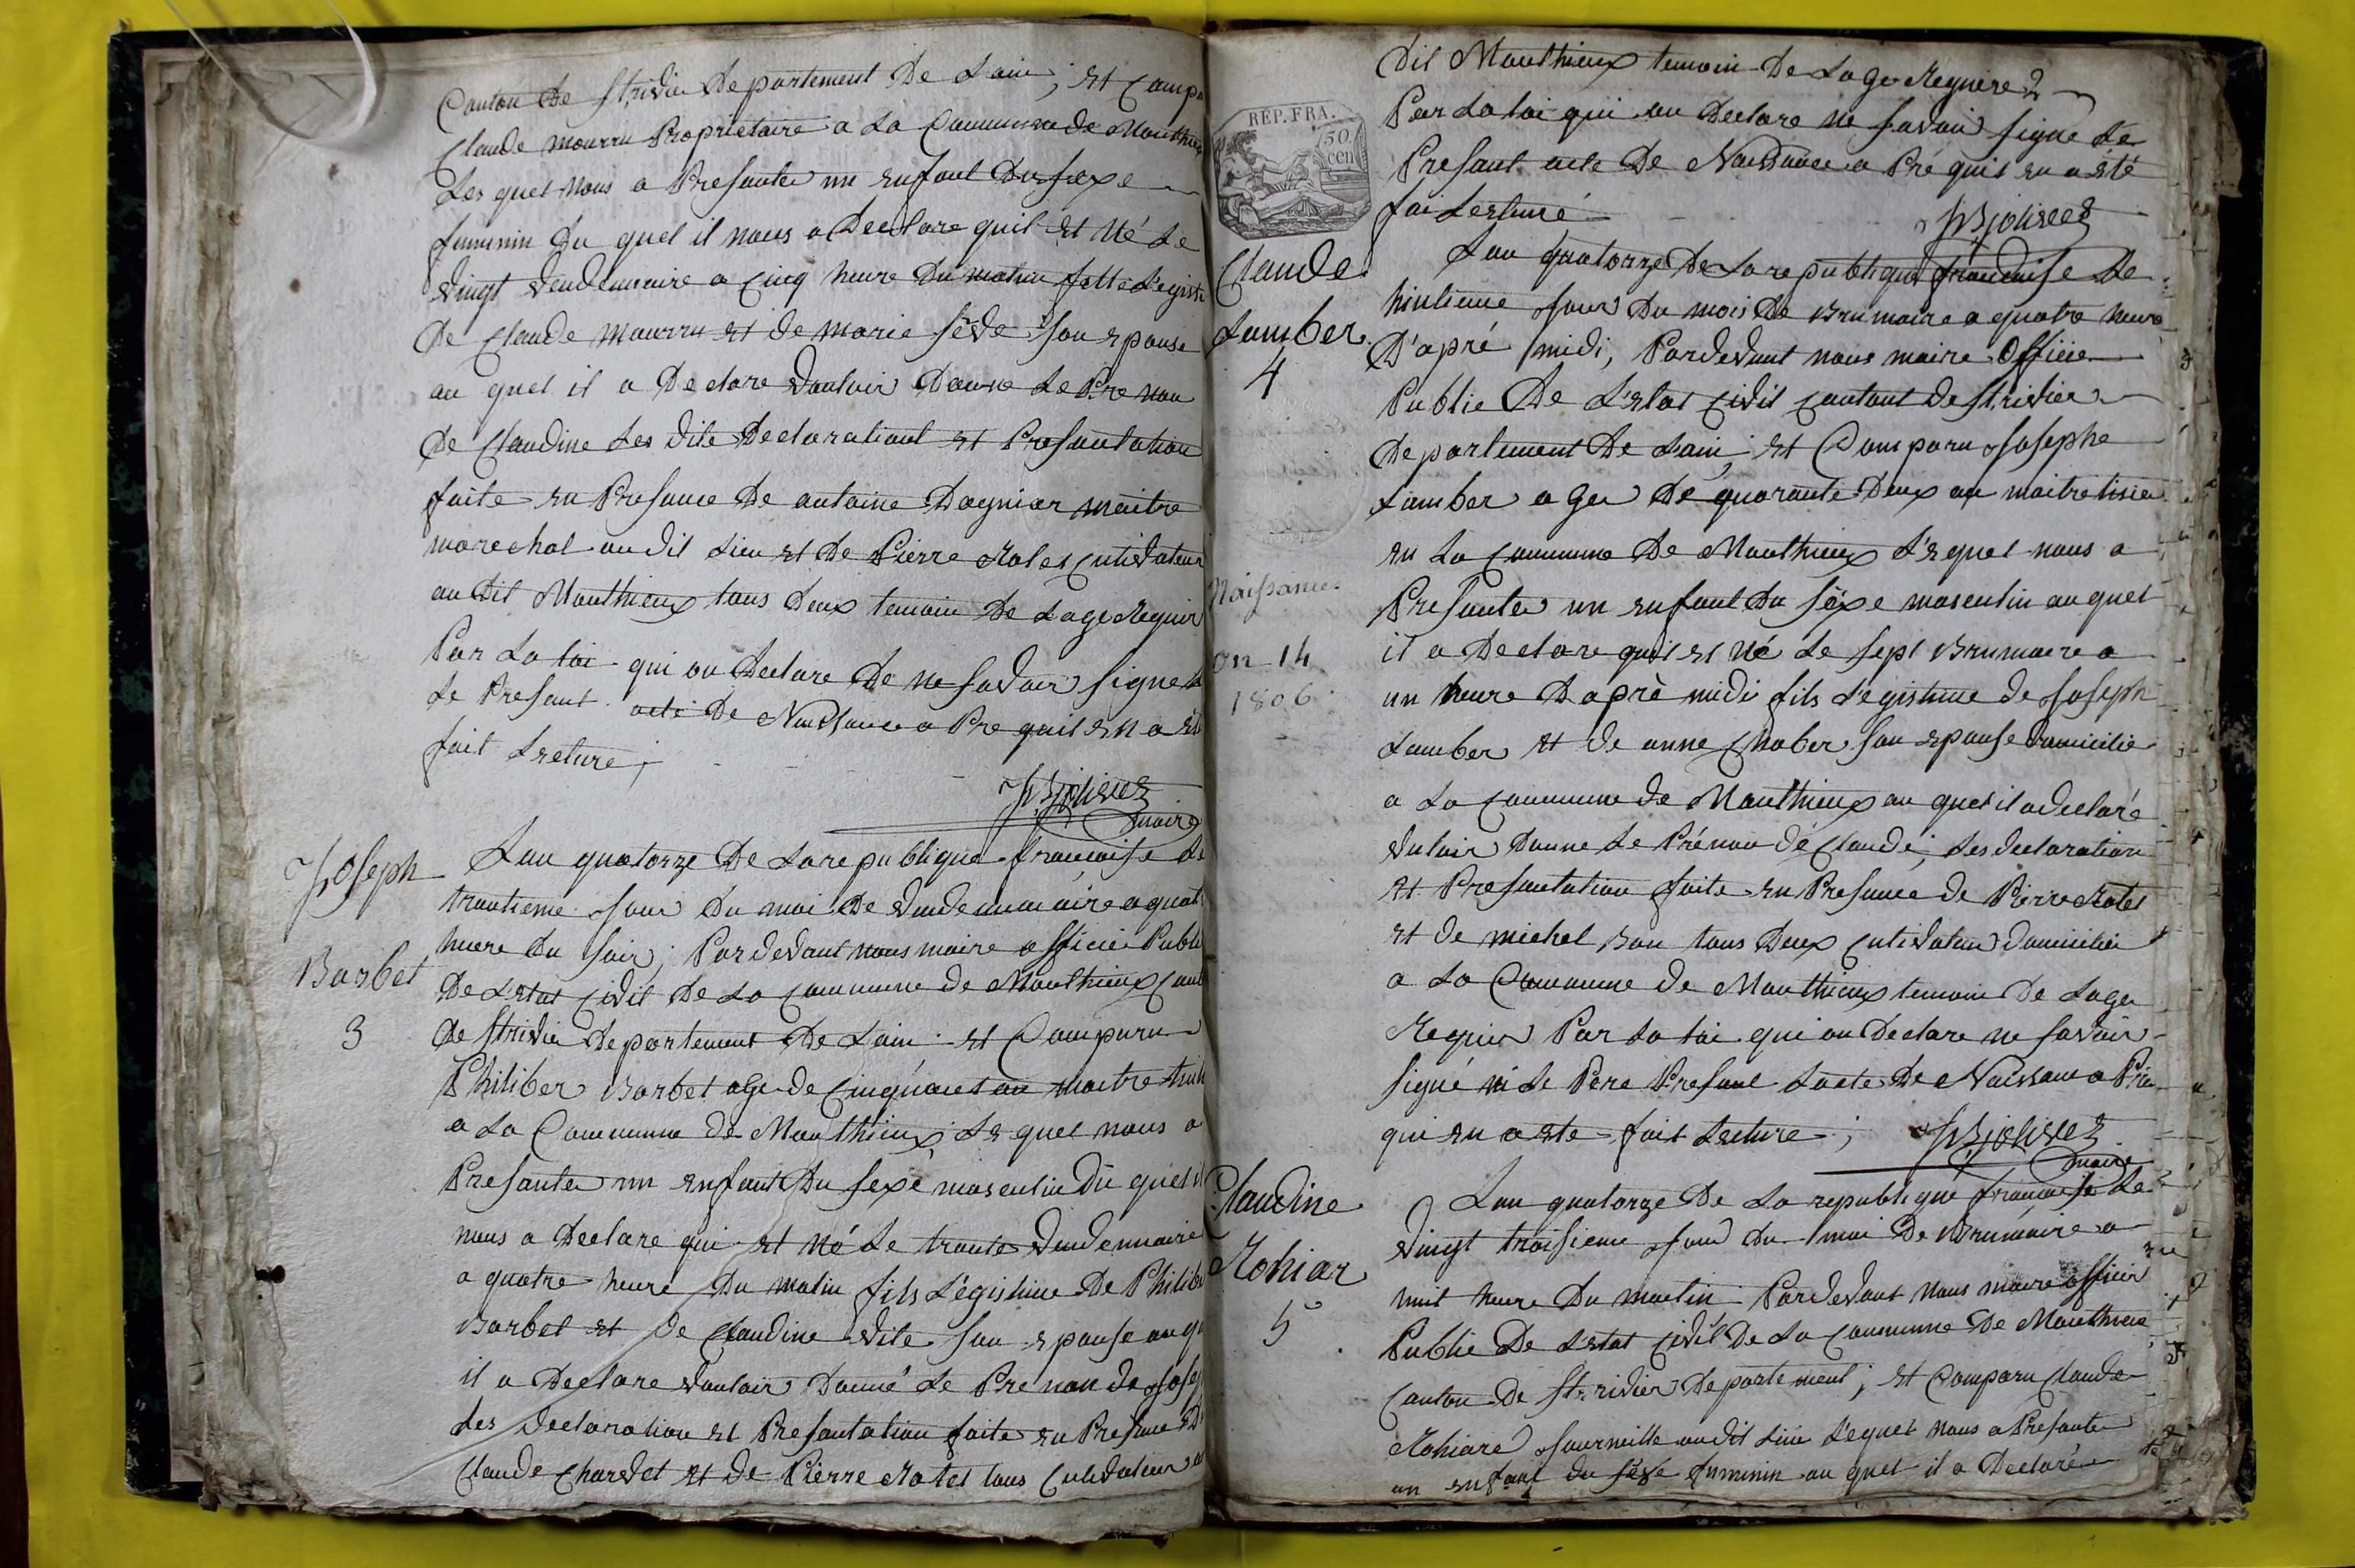 Canton de Strivie departement de Lain; et Compa
Claude mourru Propriétaire a La Commune de Monthieux
Les quel nous a Presanter un enfant du sexe
feminin du quel il nous a declare quil et né Le
vingt vendemiaire a Cinq heure du matin fille Legist
de Claude mourru et de marie séve son epouse
au quel il a declare vouloir donne Le Prenon
de Claudine Les dite declarationt et Presantation
faite en Presance de antoine Dagniar maitre
marechal au dit Lieu et de Pierre Rolet Cutivateur
au dit Monthieux tous deux temoin de Lage Requir
Par La loi qui on declare de ne savoir signe
Le Presant acte de Naissance a Pre quil en a été
fait Lecture;
JBJolivet
maire
Joseph
Barbet
3
Lan quatorze de La republique francaise Le
trantieme Jour du moi de vendemmiaire a quat
heure du soir; Par devant nous maire officié Public
de Letat Civil de La Commune de Monthieux Cant
de Strivie departement de Lain et Comparu
Philiber Barbet age de Cinquante an maitre
a La Commune de Monthieux Le quel nous a
Presanter un enfant du sexe masculin du quel il
nous a declare qui et né Le trante vendemiaire
a quatre heure du matin fils Légistime de Philibe
Barbet et de Claudine vite son epouse au qu
il a declare vouloir donné Le Pre non de Josep
des declaration et Presantation faite en Presance d
Claude Charvet et de Pierre Rolet tous Cultivateur au
dit Monthieux temoin de Lage Requere 2
Par La loi qui on declare ne savoir signe Le
Presant acte de Naissance a Pré quil en a été
fai Lecture
JBJolivet
REP. FRA.
50.
cen
Claude
Lamber
4
Naissance
an 14
1806
Lan quatorze de La republique francaise Le
huitieme Jour du mois de Brumaire a quatre heure
d'apré midi, Pardevant nous maire officie
Public de L'etat Civil Cantont de Strivier
departement de Lain; et Comparu Josephe
Lamber ager de quarante deux an maitre tisier
en La Commune de Monthieux L'equel nous a
Presanter un enfant du séxe masculin au quel
il a declare quil et né Le sept Brumaire a
un heure d aprè midi fils Légistime de Joseph
Lamber et de anne Chaber son epouse domicilie
a La Commune de Monthieux au quel il a declaré
vuloir donne Le Prénon de Claude; Les declaration
et Presantation faite en Presance de Pierre Rolet
et de michel Bon tous deux Cutivateur domicilier
a La Commune de Monthieux temoin de Lage
Requir Par La loi qui on declare ne savoir
signé ni Le Pere Presant Lacte de Naissance a Pré
qui en a ete fait Lecture;
JBJolivet
maire
Claudine
Rohiar
5
Lan quatorze de La republique francaise Le
vingt troisieme Jour du moi de Brumaire a
huit heure du matin Pardevant nous maire officier
Public de Letat Civil de La Commune de Monthieux
Canton de Strivier departement; et Comparu Claude
Rohiare Journeille audit Lieu L'equel nous a Presanter
un enfant du séxe feminin au quel il a declaré